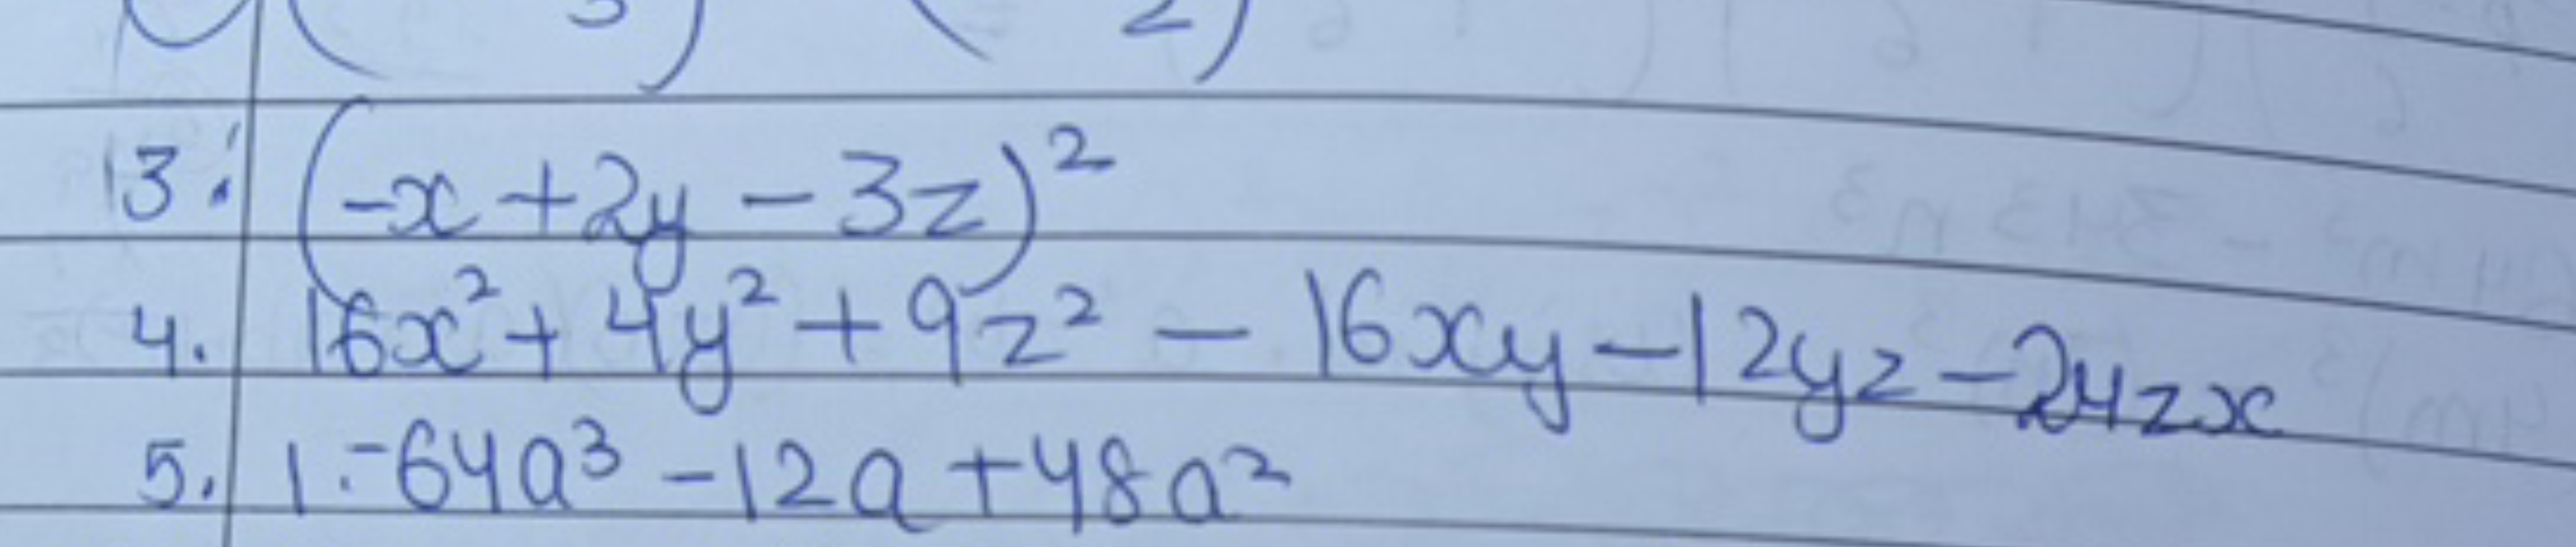 3. (-x + 2y - 3z)²
4. 16x² + 4y² + 9z² - 16xy - 12yz - 24zx
5. 1 - 64a³ - 12a + 48a²